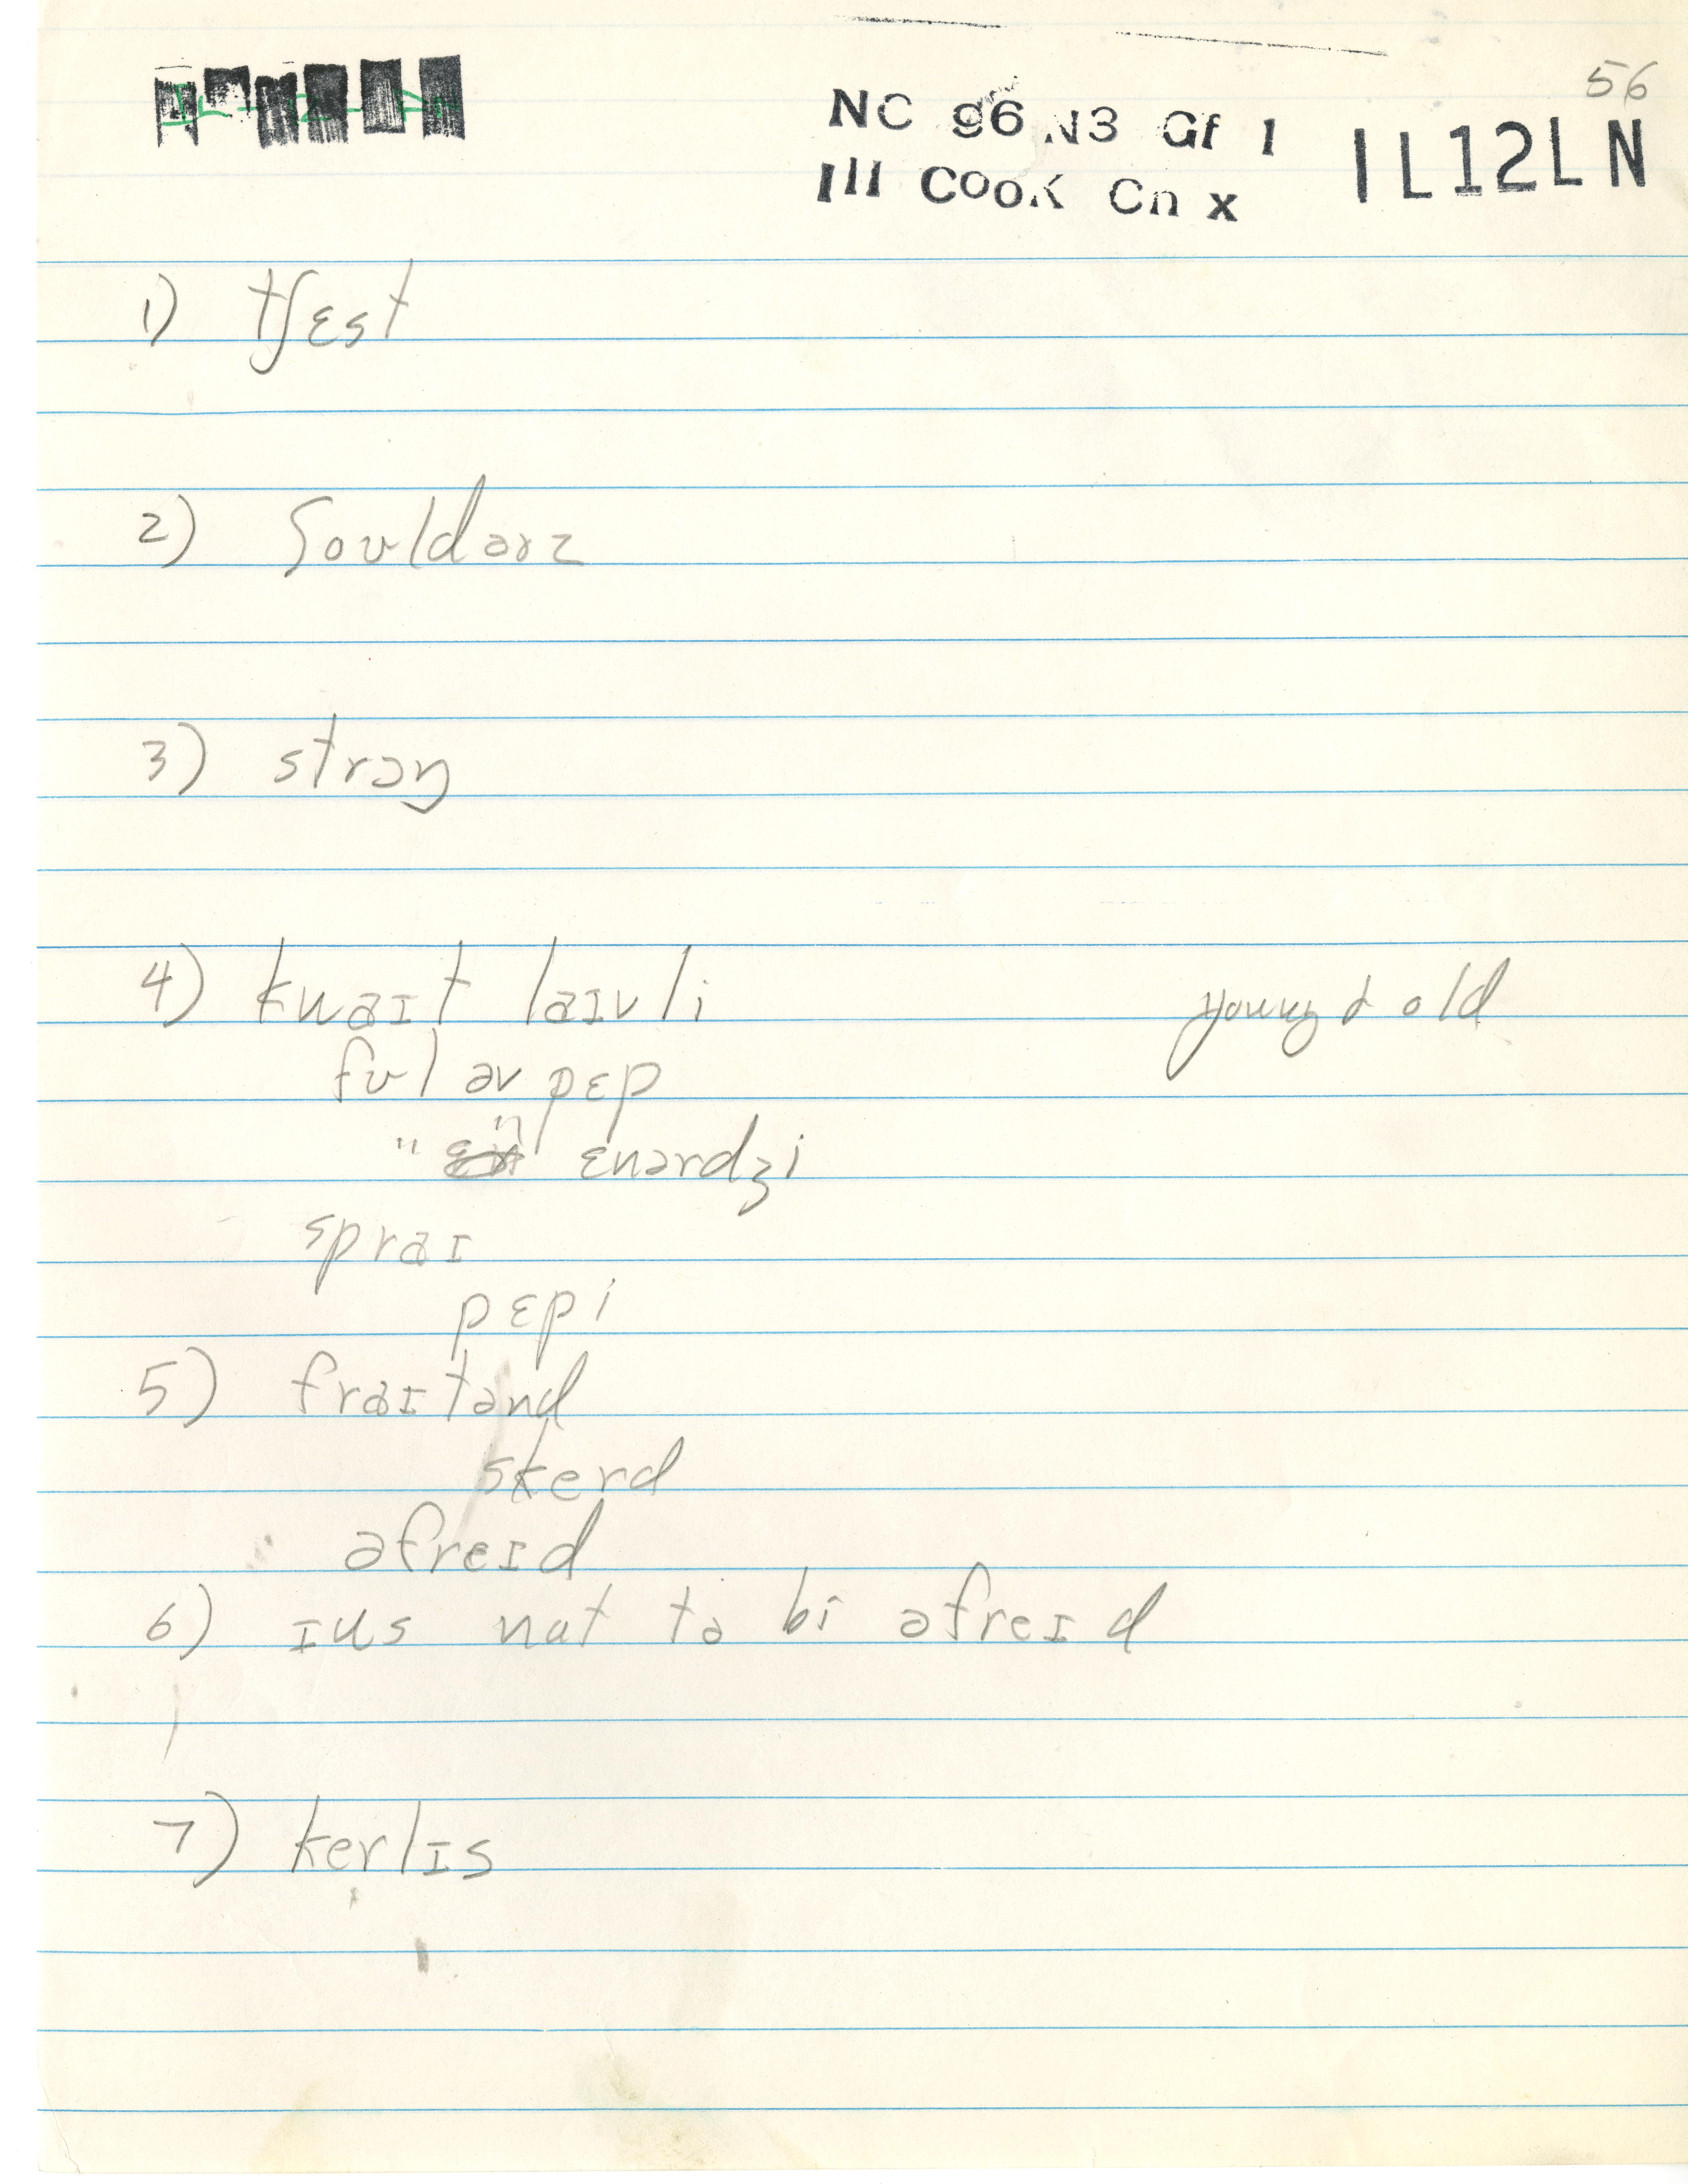 56
NC 96 N3 Gf 1 IL12LN
Ill Cook Cn x
1) tʃɛst
2) ʃoʊldərz
3) strɔŋ
4) kwaɪt laɪvli young & old
fʊl əv pɛp
" " ɛnərdʒi
spraɪ
pɛpi
5) fraɪtənd
skerd
əfreɪd
6) ɪus nat tə bi əfreɪd
7) kerlɪs